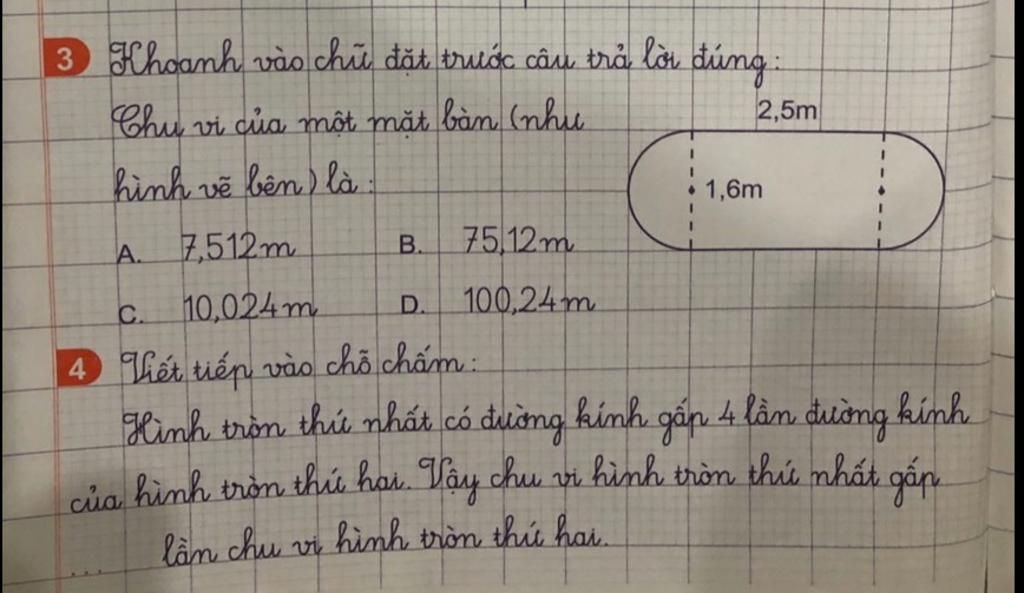 3 Khoanh vào chữ đặt trước câu trả lời đúng:
Chu vi của một mặt bàn (như
hình vẽ bên) là:
2,5m
1,6m
A. 7,512m B. 75,12m
C. 10,024m D. 100,24m
4 Viết tiếp vào chỗ chấm:
Hình tròn thứ nhất có đường kính gấp 4 lần đường kính
của hình tròn thứ hai. Vậy chu vi hình tròn thứ nhất gấp
... lần chu vi hình tròn thứ hai.